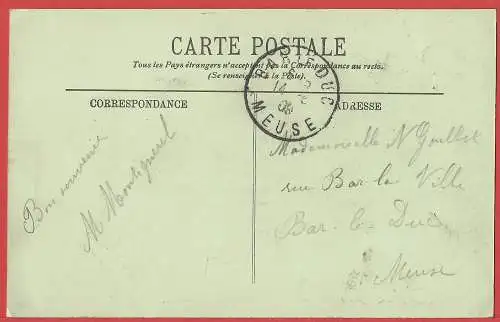 CARTE POSTALE
Tous les Pays étrangers n'acceptent pas la Correspondance au recto.
(Se renseigner à la Poste).
BAR-LE-DUC
14
MEUSE
CORRESPONDANCE
ADRESSE
Bon souvenir
M
Mademoiselle N
rue Bar la Ville
Bar-le Duc
Meuse